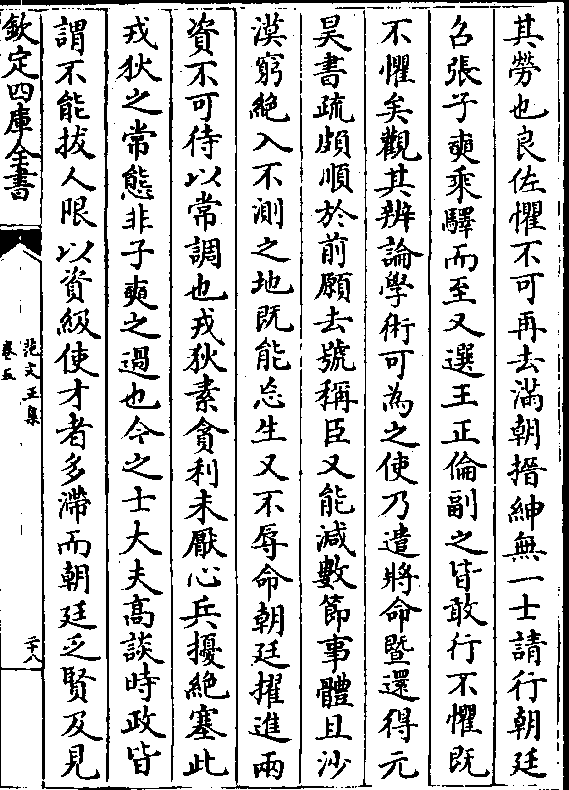 其勞也良佐懼不可再去滿朝搢紳無一士請行朝廷
召張子奭乘驛而至又選王正倫副之皆敢行不懼既
不懼矣觀其辨論學術可為之使乃遣將命暨還得元
昊書疏頗順於前願去號稱臣又能減數節事體且沙
漠窮絶入不測之地既能忘生又不辱命朝廷擢進兩
資不可待以常調也戎狄素貪利未厭心兵擾絶塞此
戎狄之常態非子奭之過也今之士大夫高談時政皆
謂不能拔人限以資級使才者多滯而朝廷乏賢及見
欽定四庫全書
范文正集
卷五
二十八